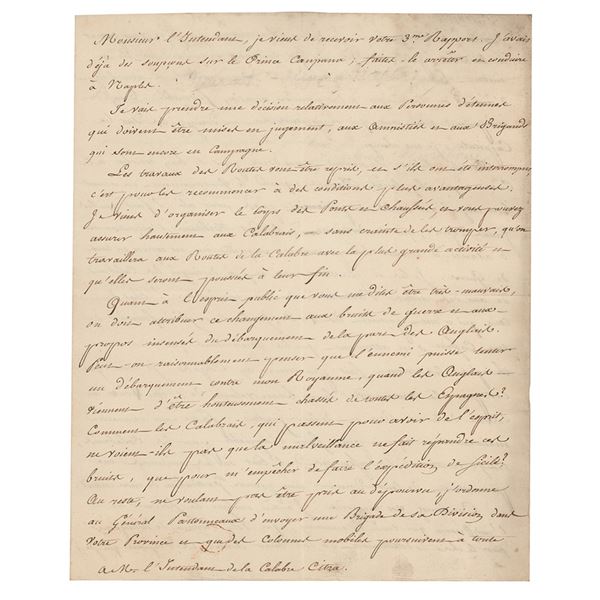 Monsieur l'Intendant, je viens de recevoir votre 3me Rapport. J'avais
déja des soupçons sur le Prince Campana, faites-le arrêter et conduire
à Naples.
Je vais prendre une décision relativement aux Personnes détenues
qui doivent être mises en jugement, aux amnistiés et aux Brigands
qui sont encore en Campagne.
Les travaux des Routes vont être repris, et s'ils ont été interrompus,
c'est pour les recommencer à des conditions plus avantageuses.
Je viens d'organiser le Corps des Ponts et chaussées, et vous pouvez
assurer hautement aux Calabrais, sans crainte de les tromper, qu'on
travaillera aux Routes de la Calabre avec la plus grande activité et
qu'elles seront poussées à leur fin.
Quant à l'esprit public que vous me dites être très-mauvais,
on doit attribuer ce changement aux bruits de guerre et aux
propos insensés du débarquement de la part des Anglais.
Peut-on raisonnablement penser que l'ennemi puisse tenter
un débarquement contre mon Royaume, quand les Anglais
viennent d'être honteusement chassés de toutes les Espagnes?
Comment les Calabrais, qui passent pour avoir de l'esprit,
ne voient-ils pas que la malveillance ne fait répandre ces
bruits, que pour m'empêcher de faire l'expédition de Sicile?
Au reste, ne voulant pas être pris au dépourvu, j'ordonne
au Général Partonneaux d'envoyer une Brigade de sa Division dans
votre Province et que des Colonnes mobiles poursuivent à toute
a Mr. l'Intendant de la Calabre Citra.